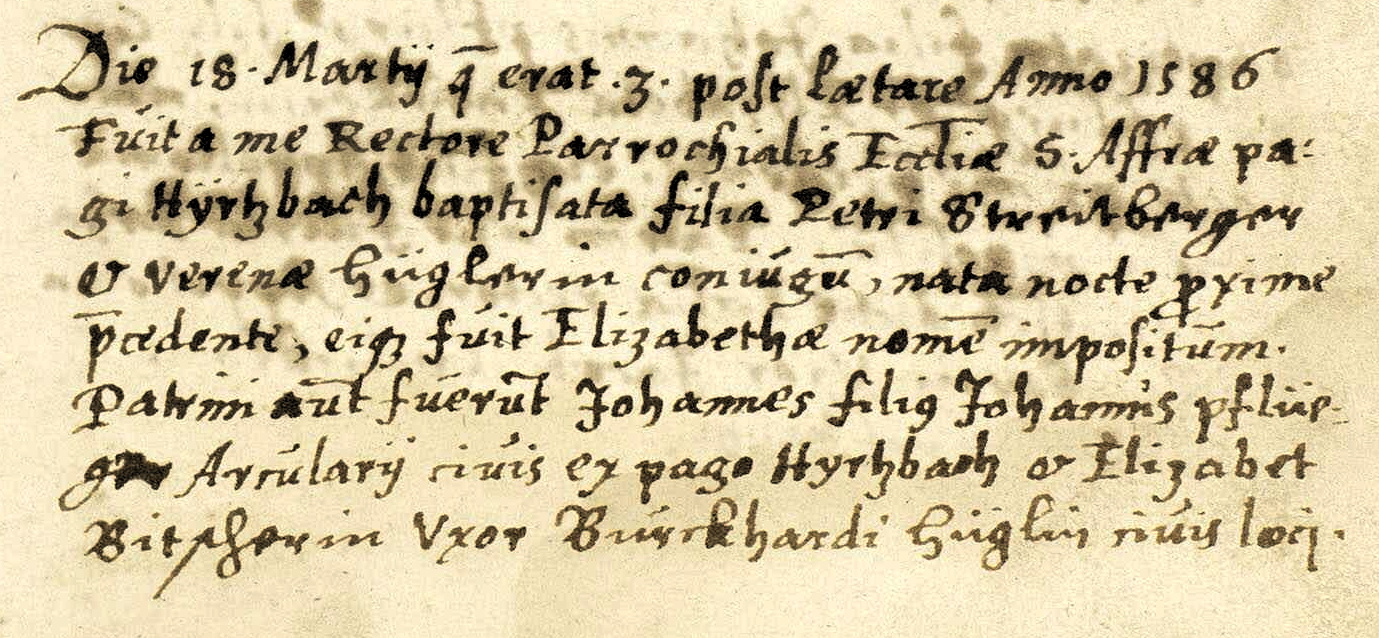 Die 18. Martij q̄ erat .3. post Lætare Anno 1586
Fuit a me Rectore Parrochialis Eccliæ S. Affræ pa-
gi Hÿrtzbach baptisata filia Petri Streitberger
& Verenæ Hüglerin coniugū, nata nocte proxime
p̄cedente, eiqȝ fuit Elizabethæ nomē impositum.
Patrini aūt fuerūt Johannes filiꝯ Johannis pflüe-
ger Arcularij civis ex pago Hyrtzbach & Elizabet
Bitscherin Vxor Burckhardi Hüglin civis loci.